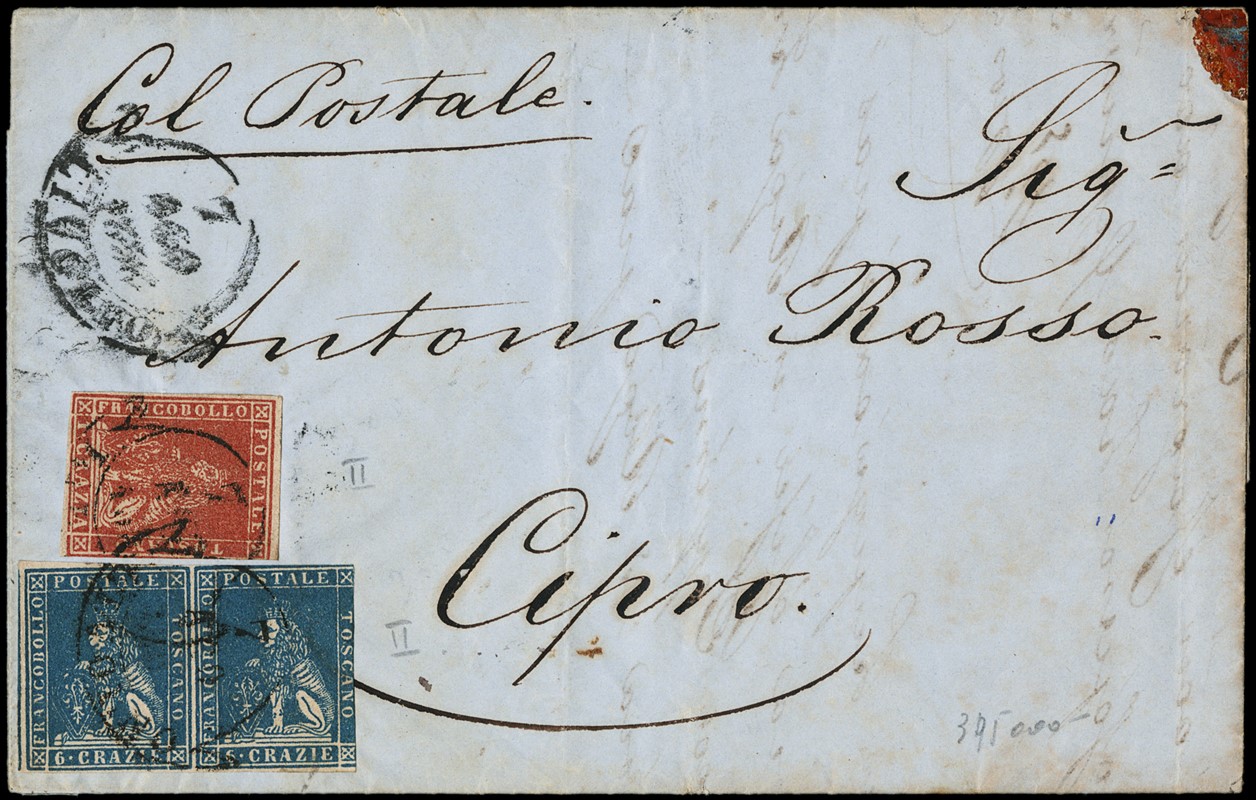 Col Postale.
Sigr
Antonio Rosso.
Cipro.
FRANCOBOLLO
POSTALE
TOSCANO
1·CRAZIA
II
POSTALE
FRANCOBOLLO
TOSCANO
6·CRAZIE
POSTALE
FRANCOBOLLO
TOSCANO
6·CRAZIE
II